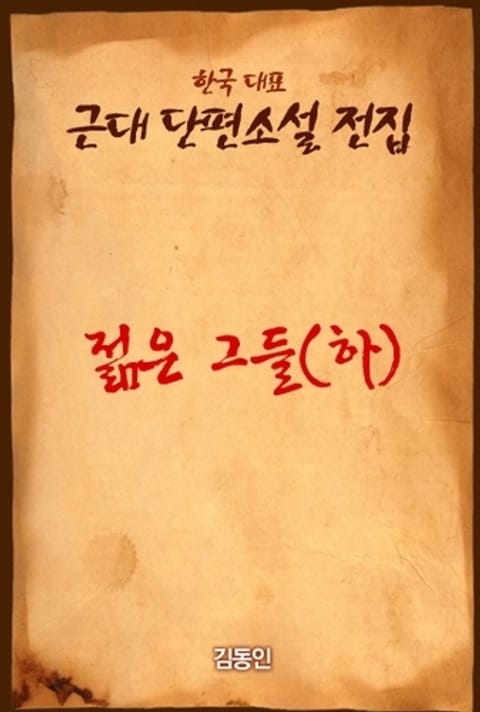 한국 대표
근대 단편소설 전집
젊은 그들(하)
김동인